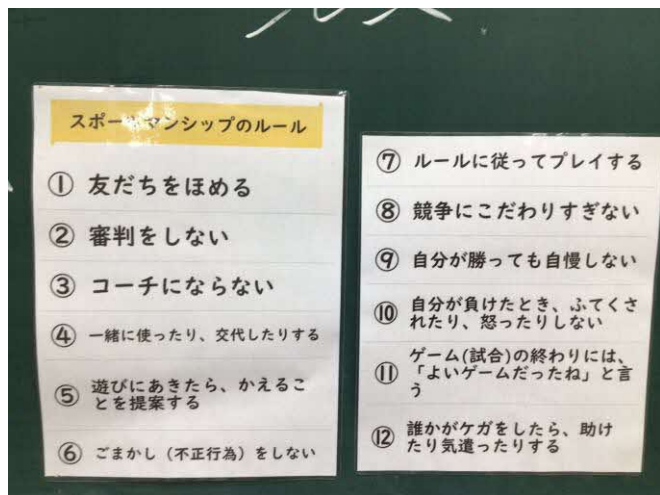 スポーツマンシップのルール
① 友だちをほめる
② 審判をしない
③ コーチにならない
④ 一緒に使ったり、交代したりする
⑤ 遊びにあきたら、かえるこ
とを提案する
⑥ ごまかし（不正行為）をしない
⑦ ルールに従ってプレイする
⑧ 競争にこだわりすぎない
⑨ 自分が勝っても自慢しない
⑩ 自分が負けたとき、ふてくさ
れたり、怒ったりしない
⑪ ゲーム(試合)の終わりには、
「よいゲームだったね」と言
う
⑫ 誰かがケガをしたら、助け
たり気遣ったりする